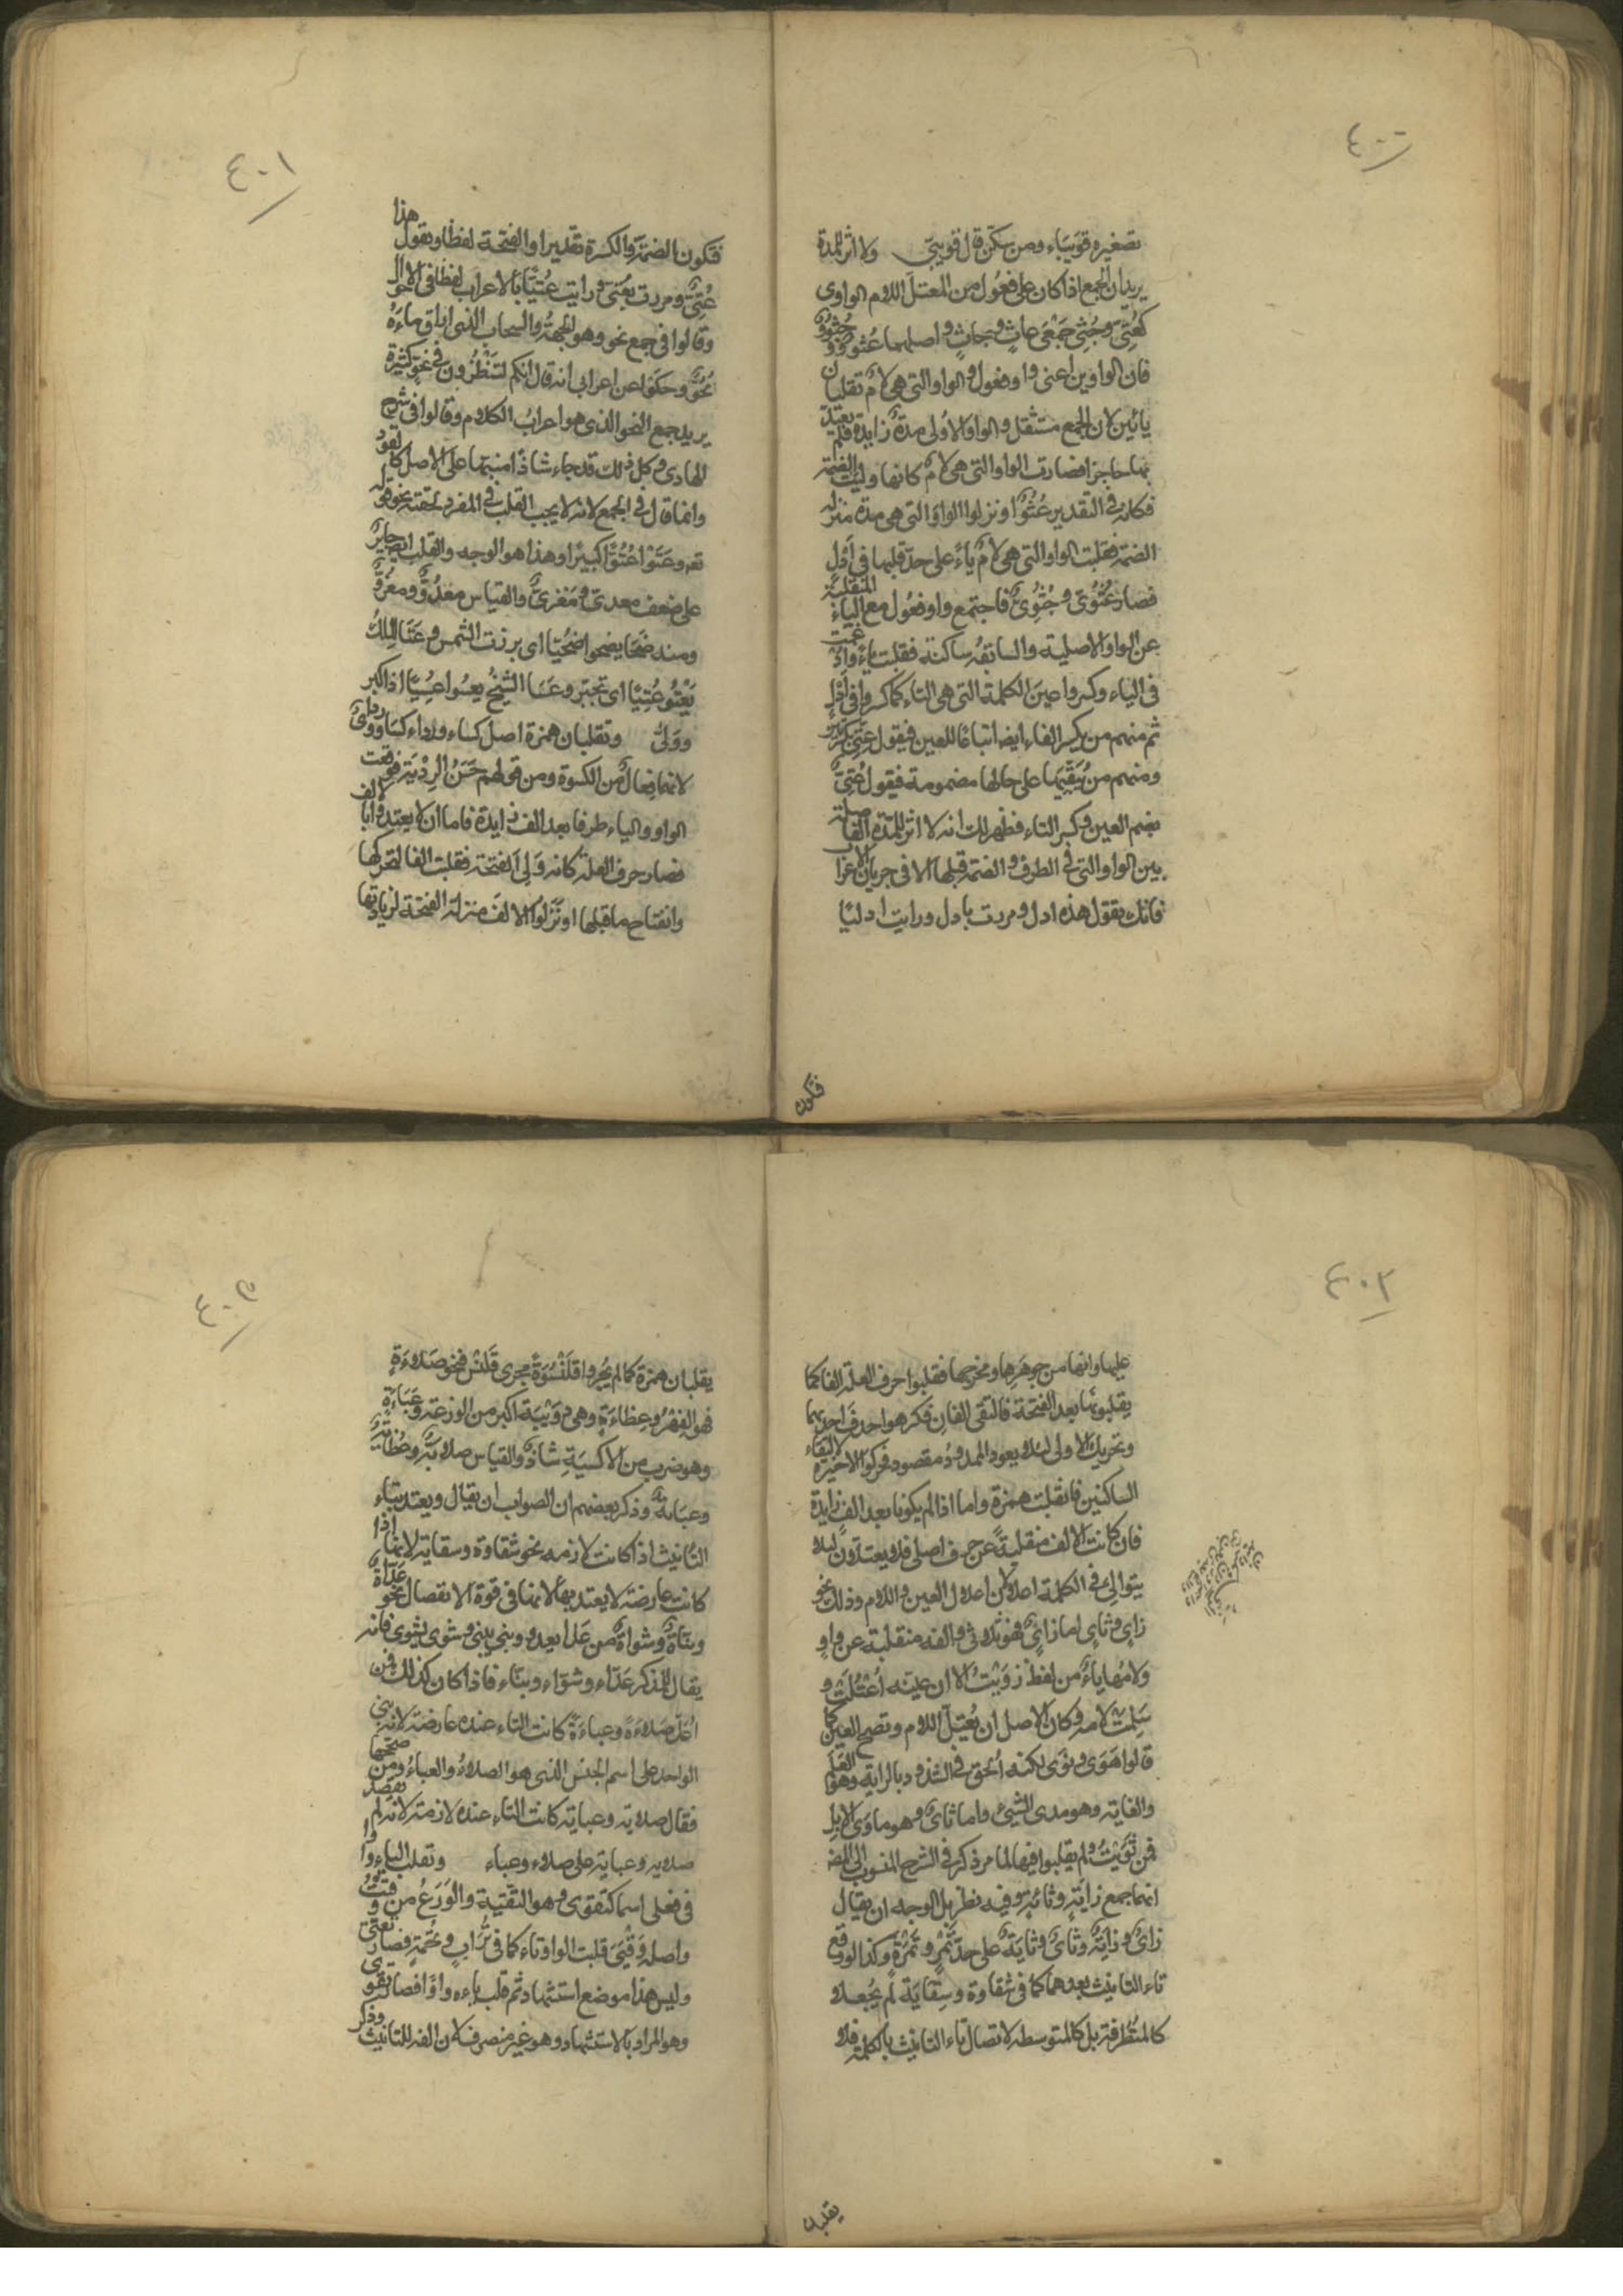 ٤٠٠
تصغيره قويباء ومن سكن قال قويبى ولا اثر للمدة
يريد ان الجمع اذا كان على فعول من المعتل اللام الواوى
كعتى وجثى جمعى عات وجاث واصلهما عثوو وجثوو
فان الواوين اعنى واو فعول والواو التى هى لام تقلبان
يائين لان الجمع مستثقل والواو الاولى مدة زايدة فلم يعتد
بها حاجزا فصارت الواو التى هى لام كانها وليت الضمة
فكانه فى التقدير عثوا ونزلوا الواو التى هى مدة منزلة
الضمة فقلبت الواو التى هى لام ياء على حد قلبها فى ادل
فصار عثوى وجثوى فاجتمع واو فعول مع الياء المنقلبة
عن الواو الاصلية والسابقة ساكنة فقلبت ياء وادغمت
فى الياء وكسروا عين الكلمة التى هى التاء كما كسروا فى ادل
ثم منهم من يكسر الفاء ايضا اتباعا للعين فيقول عتى بكسرتين
ومنهم من يبقيها على حالها مضمومة فيقول عتى
بضم العين وكسر التاء فظهر لك انه لا اثر للمدة الفاصلة
بين الواو التى فى الطرف والضمة قبلها الا فى جريان الاعراب
فانك تقول هذه ادل ومررت بادل ورايت ادليا
فتكون
٤٠١
فتكون الضمة والكسرة تقديرا والفتحة لفظا وتقول هذا
عتى ومررت بعتى ورايت عتيا بالاعراب لفظا فى الاحوال
وقالوا فى جمع نحو وهو الجهة والسحاب الذى اراق ماءه
نحو وحكوا عن اعرابى انه قال انكم لتنظرون فى نحو كثيرة
يريد جمع النحو الذى هو اعراب الكلام وقالوا فى شرح
الهادى وكل ذلك قد جاء شاذا منبها على الاصل كالقود
وانما قال فى الجمع لانه لا يجب القلب فى المفرد لخفته نحو قوله
تعه وعتوا عتوا كبيرا وهذا هو الوجه والقلب ايضا جايز
على ضعف معدى ومغزى والقياس معدو ومغزو
ومنه ضحا يضحوا ضحيا اى برزت الشمس وعتا الملك
يعتو عتيا اى تجبر وعسا الشيخ يعسوا عسيا اذا كبر
وولى وتقلبان همزة اصل كساء ورداء كساو ورداى
لانهما فعال من الكسوة ومن قولهم حسن الردية فوقعت
الواو والياء طرفا بعد الف زايدة فاما ان لا يعتدوا بالالف
فصار حرف العلة كانه ولى الفتحة فقلبت الفا لتحركها
وانفتاح ما قبلها او نزلوا الالف منزلة الفتحة لزيادتها
٤٠٢
عليها وانها من جوهرها ومخرجها فقلبوا حرف العلة الفا كما
يقلبونها بعد الفتحة فالتقى الفان فكرهوا حذف احديهما
وتحريك الاولى لئلا يعود الممدود مقصورا فحركوا الاخيرة لالتقاء
الساكنين فانقلبت همزة واما اذا لم يكونا بعد الف زايدة
فان كانت الالف منقلبة عن حرف اصلى فلا يعتدون لئلا
يتوالى فى الكلمة اعلالان اعلال العين واللام وذلك نحو
زاى وثاى اما زاى فهو ثلاثى والفه منقلبة عن واو
ولامها ياء من لفظ زويت الا ان عينه اعتلت و
سلمت لامه وكان الاصل ان يعتل اللام وتصح العين كما
قالوا هوى ونوى لكنه الحق فى الشذوذ بالراية وهو العلم
والغاية وهو مدى الشئ واما ثاى وهو ماوى الابل
فمن ثويت ولم يقلبوا فيها لما مر ذكر فى الشرح المنسوب الى المص
انهما جمع زاية وثاية وفيه نظر بل الوجه ان يقال
زاى وزاية وثاى وثاية على حد تمر وتمرة وكذا لو وقع
تاء التانيث بعدهما كما فى شقاوة وسقاية لم يجعلا
كالمتطرفة بل كالمتوسطة لاتصال تاء التانيث بالكلمة فلا
يقلبان
٤٠٣
يقلبان همزة كما لم يجروا قلنسوة مجرى قلنس فنحو صلاءة
فهو الفهر وعظاءة وهى دويبة اكبر من الوزغة وعباءة
وهو ضرب من الاكسية شاذ والقياس صلاية وعظاية
وعباية وذكر بعضهم ان الصواب ان يقال ويعتد بتاء
التانيث اذا كانت لازمه نحو شقاوة وسقاية لانها اذا
كانت عارضة لا يعتد بها لانها فى قوة الانفصال نحو عداءة
وبناة وشواة من عدا يعدو وبنى يبنى وشوى يشوى فانه
يقال للمذكر عداء وشواء وبناء فاذا كان كذلك فمن
اعل صلاءة وعباءة كانت التاء عنده عارضة لانه بنى
الواحد على اسم الجنس الذى هو الصلاء والعباء ومن صححها
فقال صلاية وعباية كانت التاء عنده لازمة لانه لم يقصد
صلاية وعباية على صلاء وعباء وتقلب الياء واوا
فى فعلى اسما كتقوى وهو التقية والورع من وقيت
واصله وقيى قلبت الواو تاء كما فى تراب وتخمة فصار تقيى
وليس هذا موضع استشهاد ثم قلب ياءه واوا فصار تقوى
وهو المراد بالاستشهاد وهو غير منصرف لان الفه للتانيث وذكر